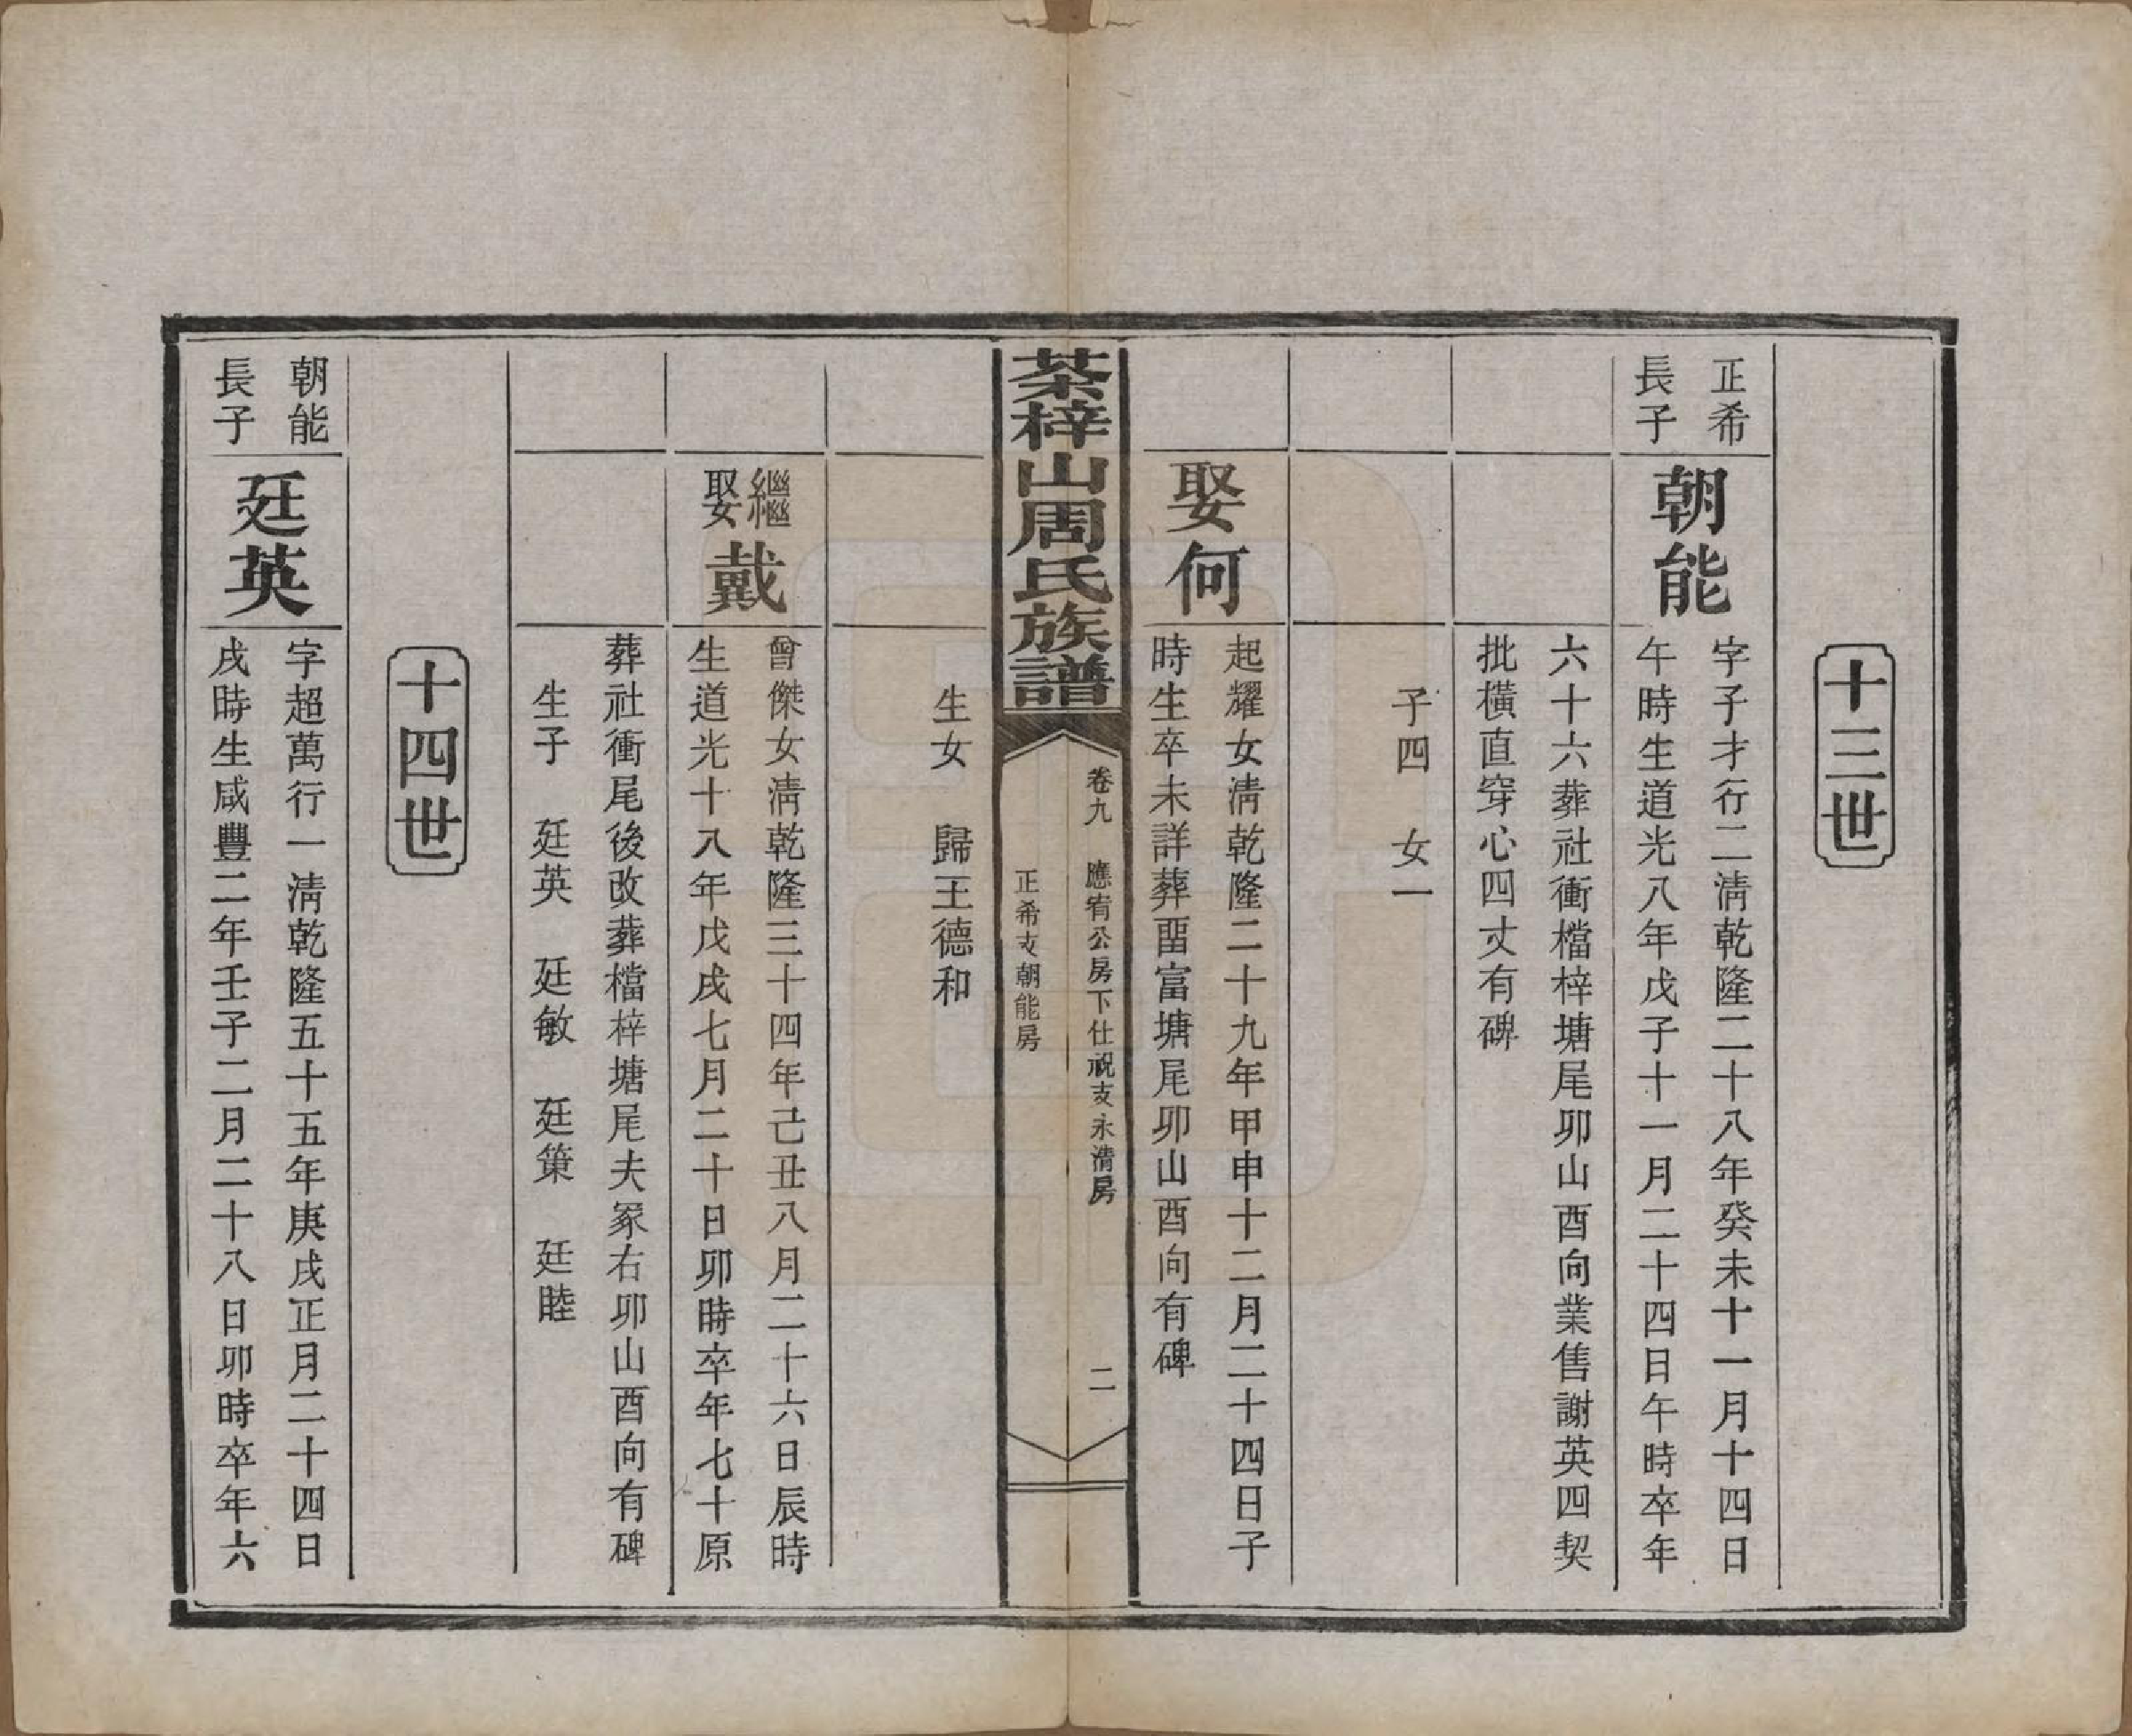 十三世
正希
長子
朝能
字子才行二淸乾隆二十八年癸未十一月十四日
午時生道光八年戊子十一月二十四日午時卒年
六十六葬社衝檔梓塘尾卯山酉向業售謝英四契
批橫直穿心四丈有碑
子四　女一
娶何
起耀女淸乾隆二十九年甲申十二月二十四日子
時生卒未詳葬畱富塘尾卯山酉向有碑
茶梓山周氏族譜
卷九　應宥公房下仕祝支永淸房
正希支朝能房
二
生女　歸王德和
繼娶戴
曾傑女淸乾隆三十四年己丑八月二十六日辰時
生道光十八年戊戌七月二十日卯時卒年七十原
葬社衝尾後改葬檔梓塘尾夫冢右卯山酉向有碑
生子　廷英　廷敏　廷策　廷睦
十四世
朝能
長子
廷英
字超萬行一淸乾隆五十五年庚戌正月二十四日
戌時生咸豐二年壬子二月二十八日卯時卒年六